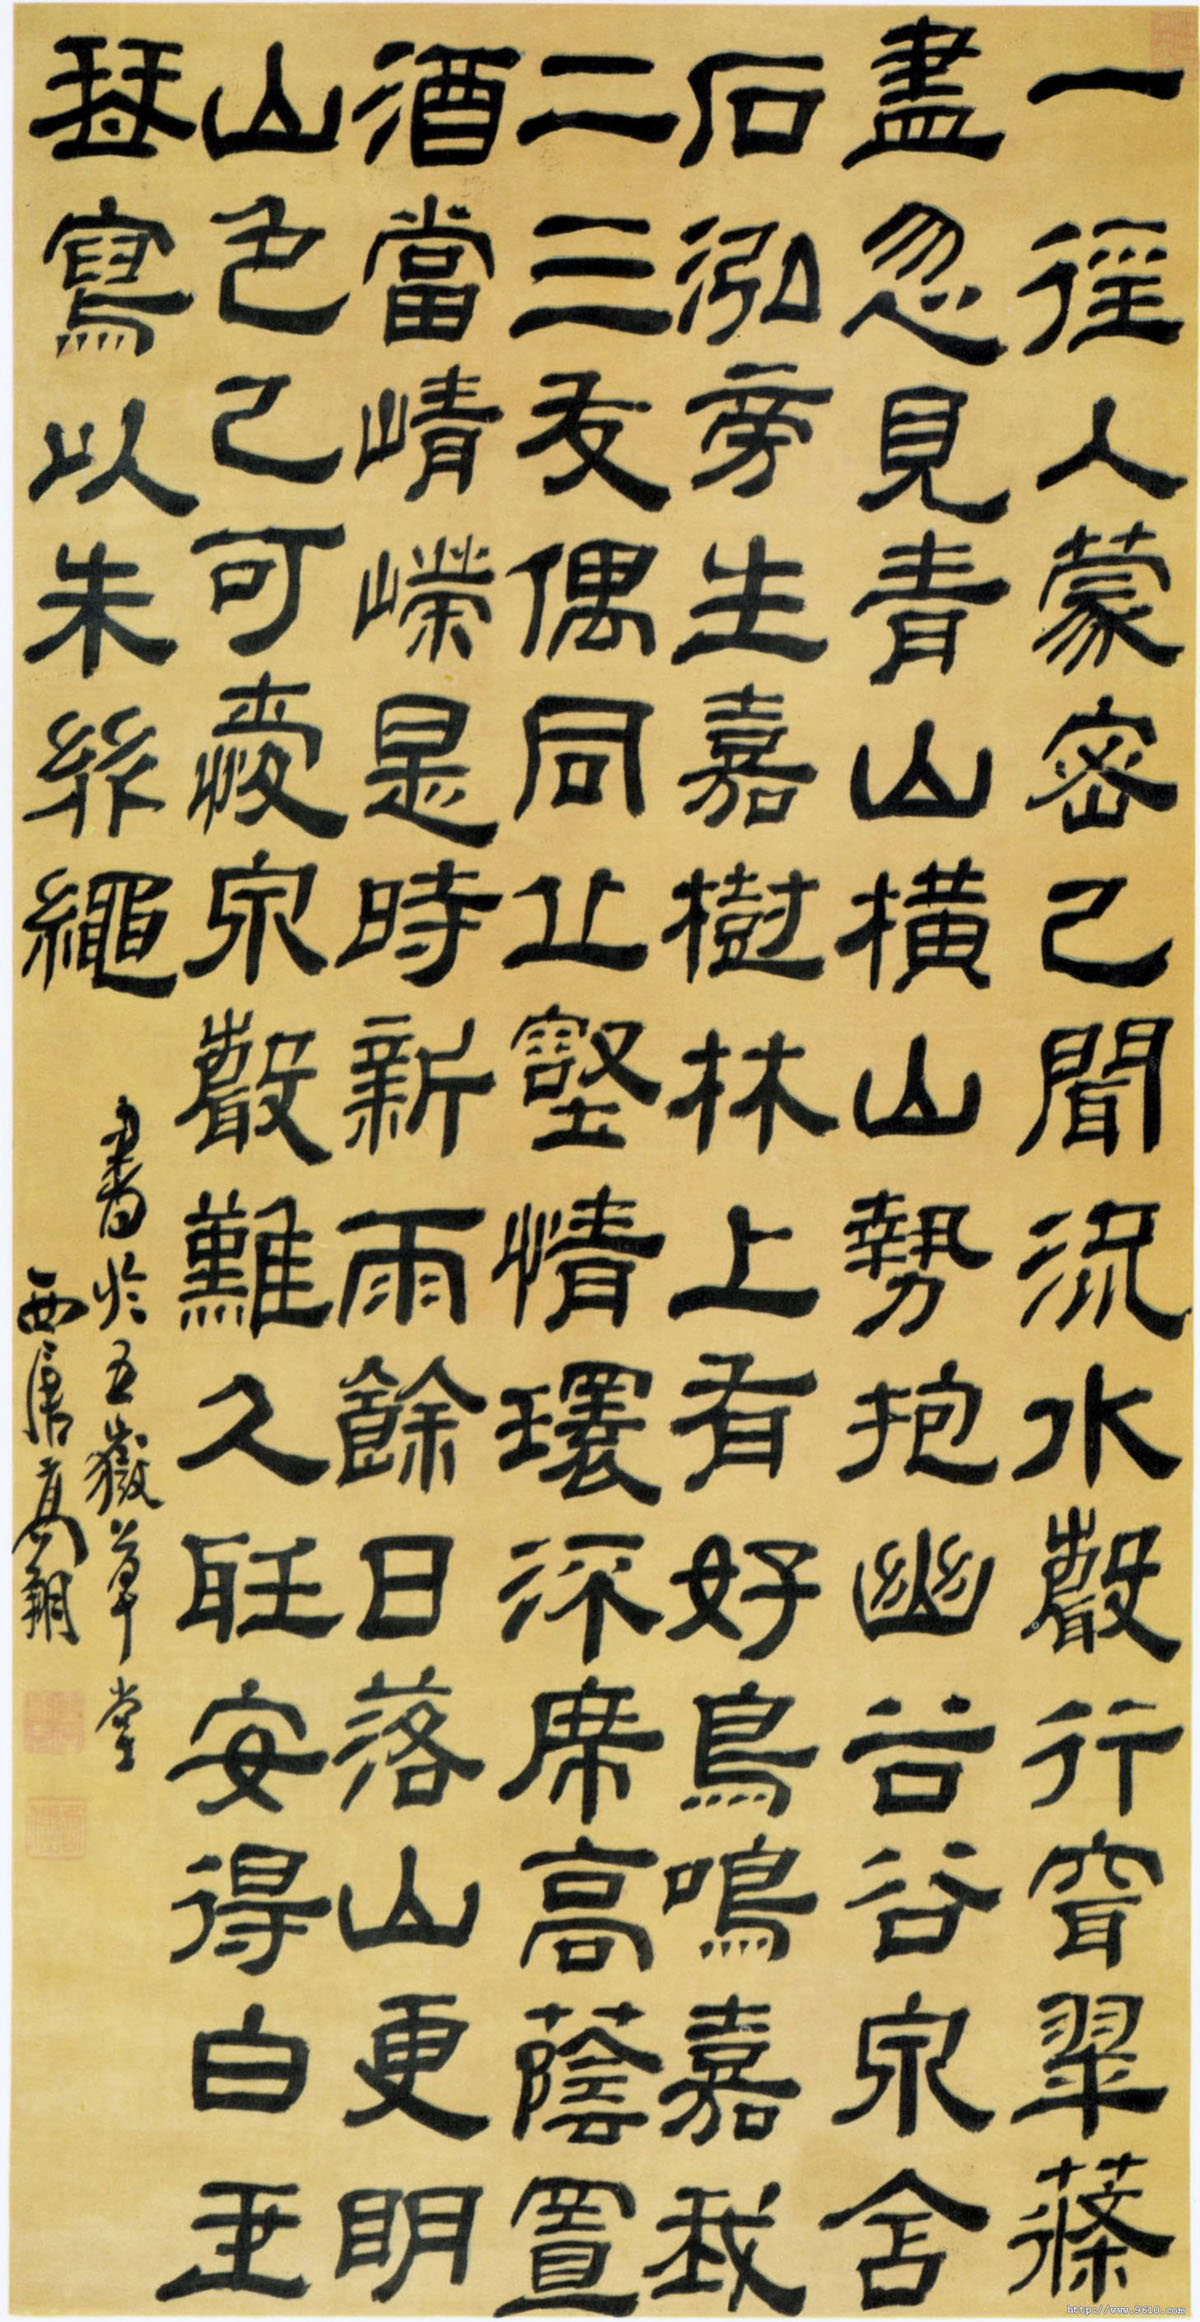 一徑入蒙密已聞流水聲行穿翠蓧
盡忽見青山橫山勢抱幽谷谷泉含
石泓旁生嘉樹林上有好鳥鳴嘉我
二三友偶同丘壑情環深席高蔭置
酒當崝嶸是時新雨餘日落山更明
山色已可愛泉聲難久聽安得白玉
琴寫以朱絲繩
書於五嶽草堂
西唐高翔
http://www.9610.com